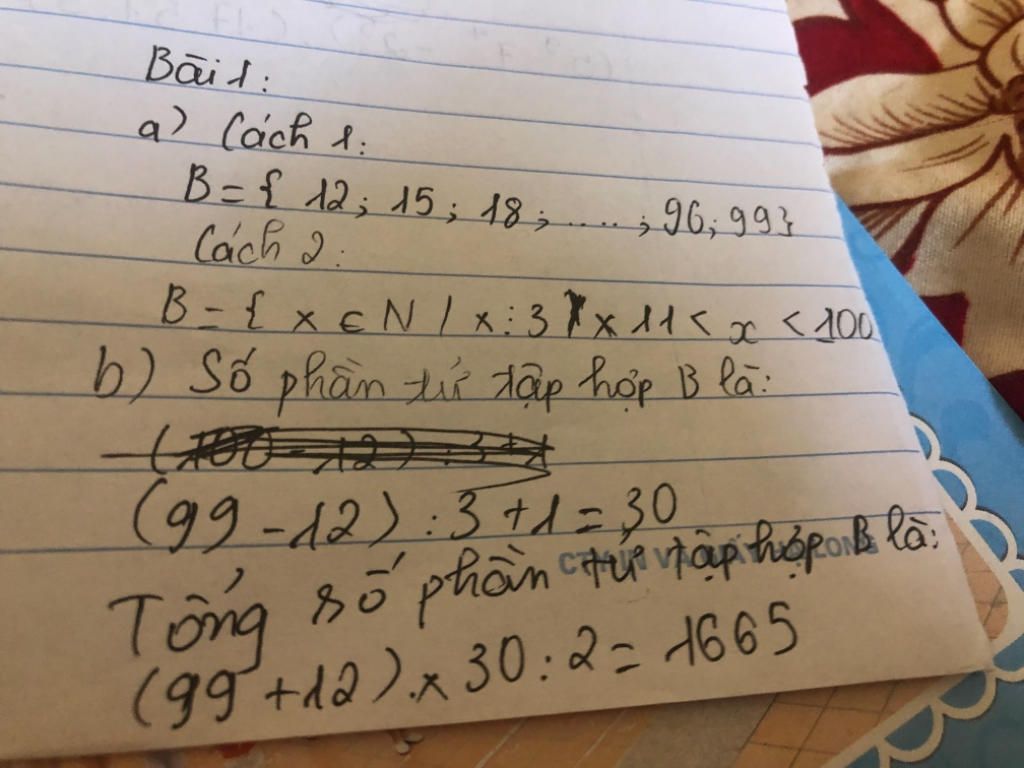 Bài 1:
a) Cách 1:
B = { 12; 15; 18; .....; 96; 99}
Cách 2:
B = { x ∈ N / x ⋮ 3 x 11 < x < 100
b) Số phần tử tập hợp B là:
(100 - 12) : 3 + 1
(99 - 12) : 3 + 1 = 30
Tổng số phần tử tập hợp B là:
(99 + 12) . x 30 : 2 = 1665